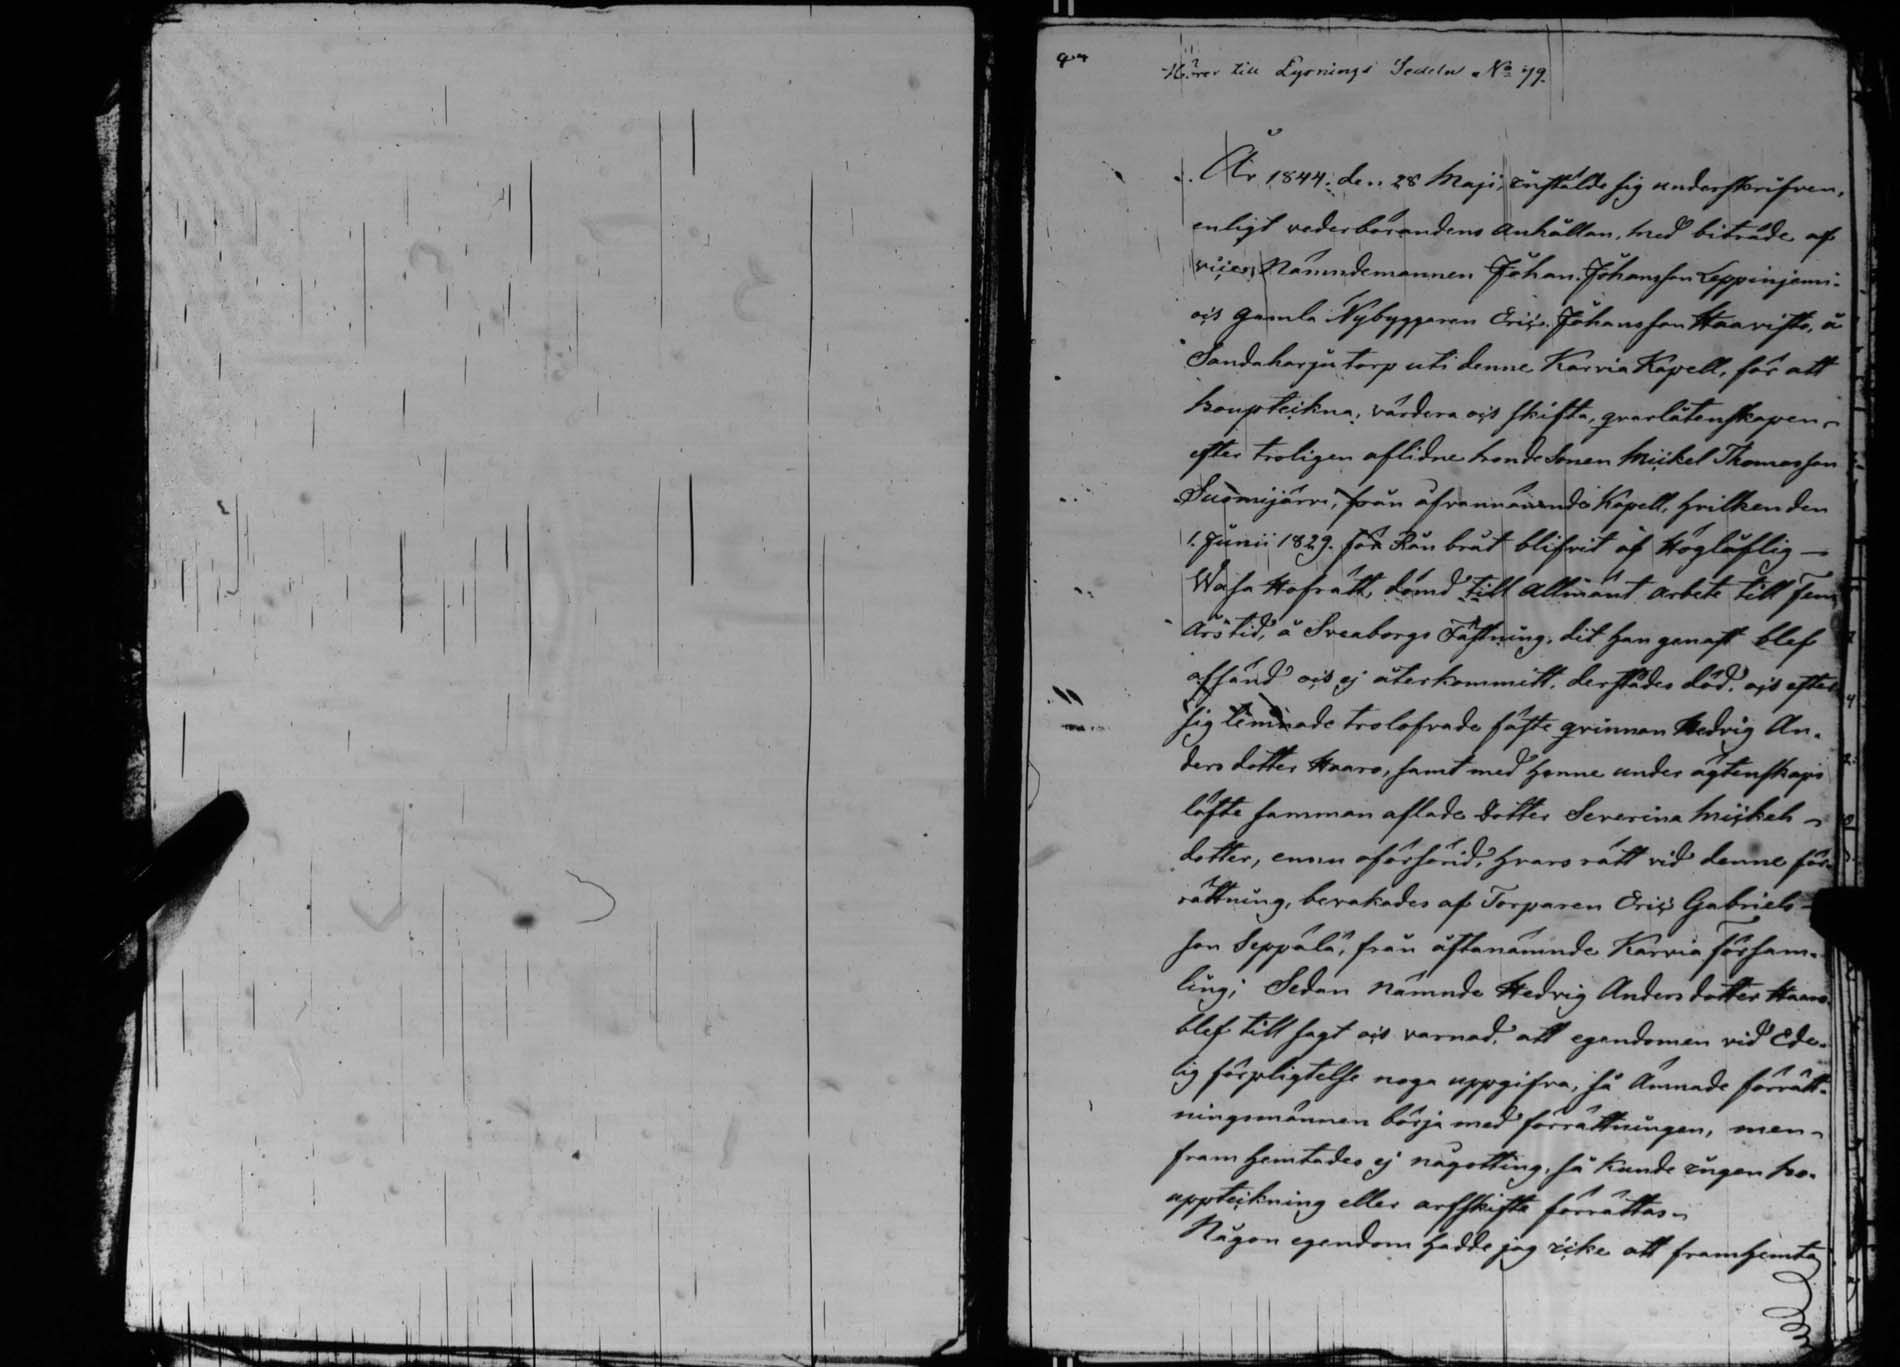 Hörer till Lysnings Sedeln No 79.
År 1844. den 28 Maji, instälde sig underskrifven,
enligt vederbörandens anhållan, med biträde af
vice Nämndemannen Johan Johansson Leppinjemi
och gamla Nybyggaren Eric Johansson Haavisto, å
Sandaharju torp uti denne Karvia Kapell, för att
boupteckna, värdera och skifta, qvarlåtenskapen
efter troligen aflidne bonde Sonen Michel Thomasson
Suomijärvi, från ofvannämnde Kapell, hvilken den
1. Junii 1829. för Rån bråt blifvit af Höglåflig
Wasa Hofrätt, dömd till Allmänt arbete till fem
års tid, å Sveaborgs Fästning, dit han genast blef
afsänd och ej återkommitt, derstädes död, och efter
sig lemnade trolofvade fäste qvinnan Hedvig An-
ders dotter Haaro, samt med henne under ägtenskaps
löfte samman aflade dotter Severina Michels
dotter, ennu oförsörid, hvars rätt vid denne för-
rättning, bevakades af Torparen Eric Gabriels
son Seppälä, från oftanämnde Karvia Försam-
ling; Sedan nämnde Hedvig Anders dotter Haaro
blef till sagt och varnad, att egendomen vid Ede-
lig förpligtelse noga uppgifva, så Ämnade förrätt-
ningsmännen börja med förrättningen, men
fram hemtades ej någotting, så kunde ingen bo-
uppteckning eller arfskifte förrättas
Någon egendom hadde jag icke att framhemta